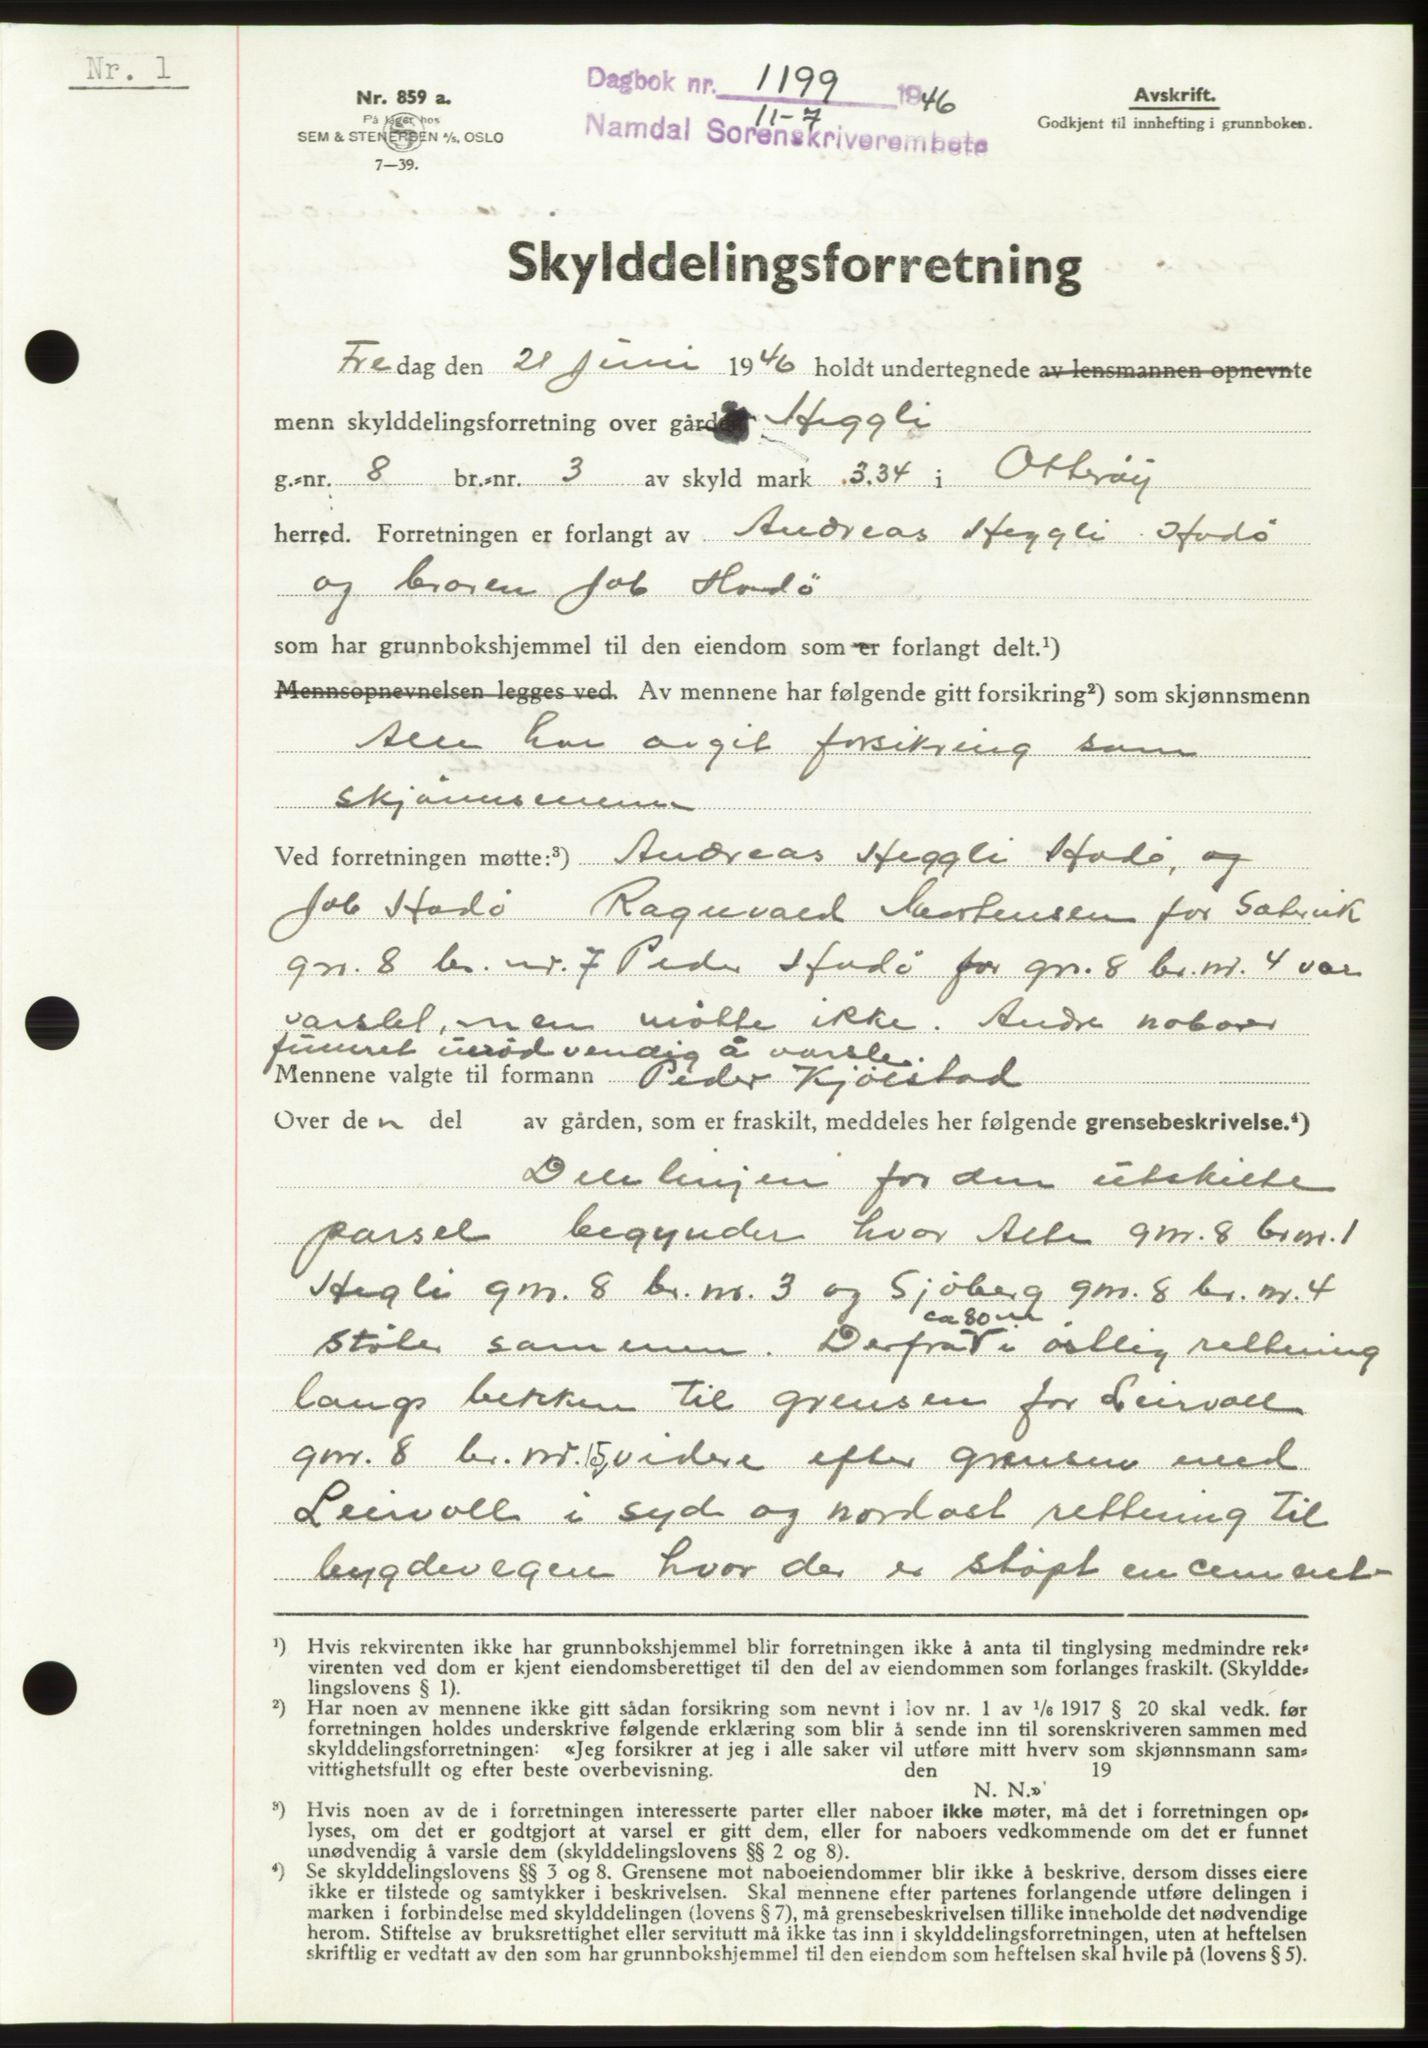 Nr. 1
Nr. 859 a.
På lager hos
SEM & STENERSEN A/S, OSLO
7—39.
Dagbok nr. 1199 1946
11-7
Namdal Sorenskriverembete
Avskrift.
Godkjent til innhefting i grunnboken.
Skylddelingsforretning
Fredag den 21 juni 1946 holdt undertegnede av lensmannen opnevnte
menn skylddelingsforretning over gården Heggli
g.-nr. 8 br.-nr. 3 av skyld mark 3.34 i Otterøy
herred. Forretningen er forlangt av Andreas Heggli Hodö
og broren Job Hodö
som har grunnbokshjemmel til den eiendom som er forlangt delt.¹)
Mennsopnevnelsen legges ved. Av mennene har følgende gitt forsikring²) som skjønnsmenn
Alle har avgit forsikring som
skjönnsmenn
Ved forretningen møtte:³) Andreas Heggli Hodö, og
Job Hodö Ragnvald Mortensen for Satervik
gnr. 8 br. nr. 7 Peder Hodö for gnr. 8 br. nr. 4 var
varslet, men mötte ikke. Andre naboer
funnet unödvendig å varsle.
Mennene valgte til formann Peder Kjölstad
Over den del av gården, som er fraskilt, meddeles her følgende grensebeskrivelse.⁴)
Delelinjen for den utskilte
parsel begynder hvor Alte gnr. 8 br.nr. 1
Hegli gnr. 8 br. nr. 3 og Sjöberg gnr. 8 br. nr. 4
ca 80 m
stöter sammen. Derfra i östlig rettning
langs bekken til grensen for Leirvoll
gnr. 8 br. nr. 15, videre efter grensen med
Leirvoll i syd og nordost rettning til
bygdevegen hvor der er stöpt en cement-
¹) Hvis rekvirenten ikke har grunnbokshjemmel blir forretningen ikke å anta til tinglysing medmindre rek-
virenten ved dom er kjent eiendomsberettiget til den del av eiendommen som forlanges fraskilt. (Skyldde-
lingslovens § 1).
²) Har noen av mennene ikke gitt sådan forsikring som nevnt i lov nr. 1 av ¹/₆ 1917 § 20 skal vedk. før
forretningen holdes underskrive følgende erklæring som blir å sende inn til sorenskriveren sammen med
skylddelingsforretningen: «Jeg forsikrer at jeg i alle saker vil utføre mitt hverv som skjønnsmann sam-
vittighetsfullt og efter beste overbevisning. den 19
N. N.»
³) Hvis noen av de i forretningen interesserte parter eller naboer ikke møter, må det i forretningen op-
lyses, om det er godtgjort at varsel er gitt dem, eller for naboers vedkommende om det er funnet
unødvendig å varsle dem (skylddelingslovens §§ 2 og 8).
⁴) Se skylddelingslovens §§ 3 og 8. Grensene mot naboeiendommer blir ikke å beskrive, dersom disses eiere
ikke er tilstede og samtykker i beskrivelsen. Skal mennene efter partenes forlangende utføre delingen i
marken i forbindelse med skylddelingen (lovens § 7), må grensebeskrivelsen tillike inneholde det nødvendige
herom. Stiftelse av bruksrettighet eller servitutt må ikke tas inn i skylddelingsforretningen, uten at heftelsen
skriftlig er vedtatt av den som har grunnbokshjemmel til den eiendom som heftelsen skal hvile på (lovens § 5).